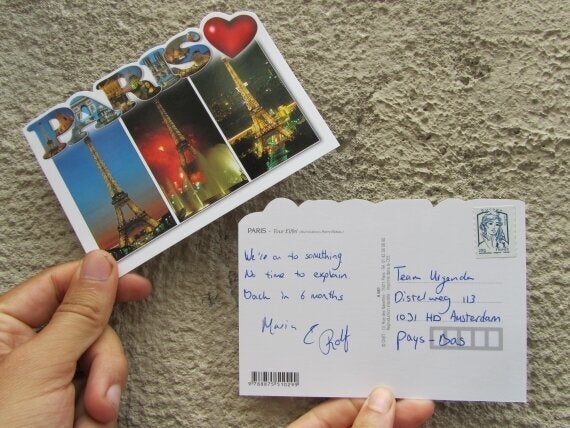 PARIS
PARIS - Tour Eiffel
We're on to something
No time to explain
back in 6 months
Maria & Rolf
Team Uganda
Distelweg 113
1031 HD Amsterdam
Pays-Bas
9788875510299